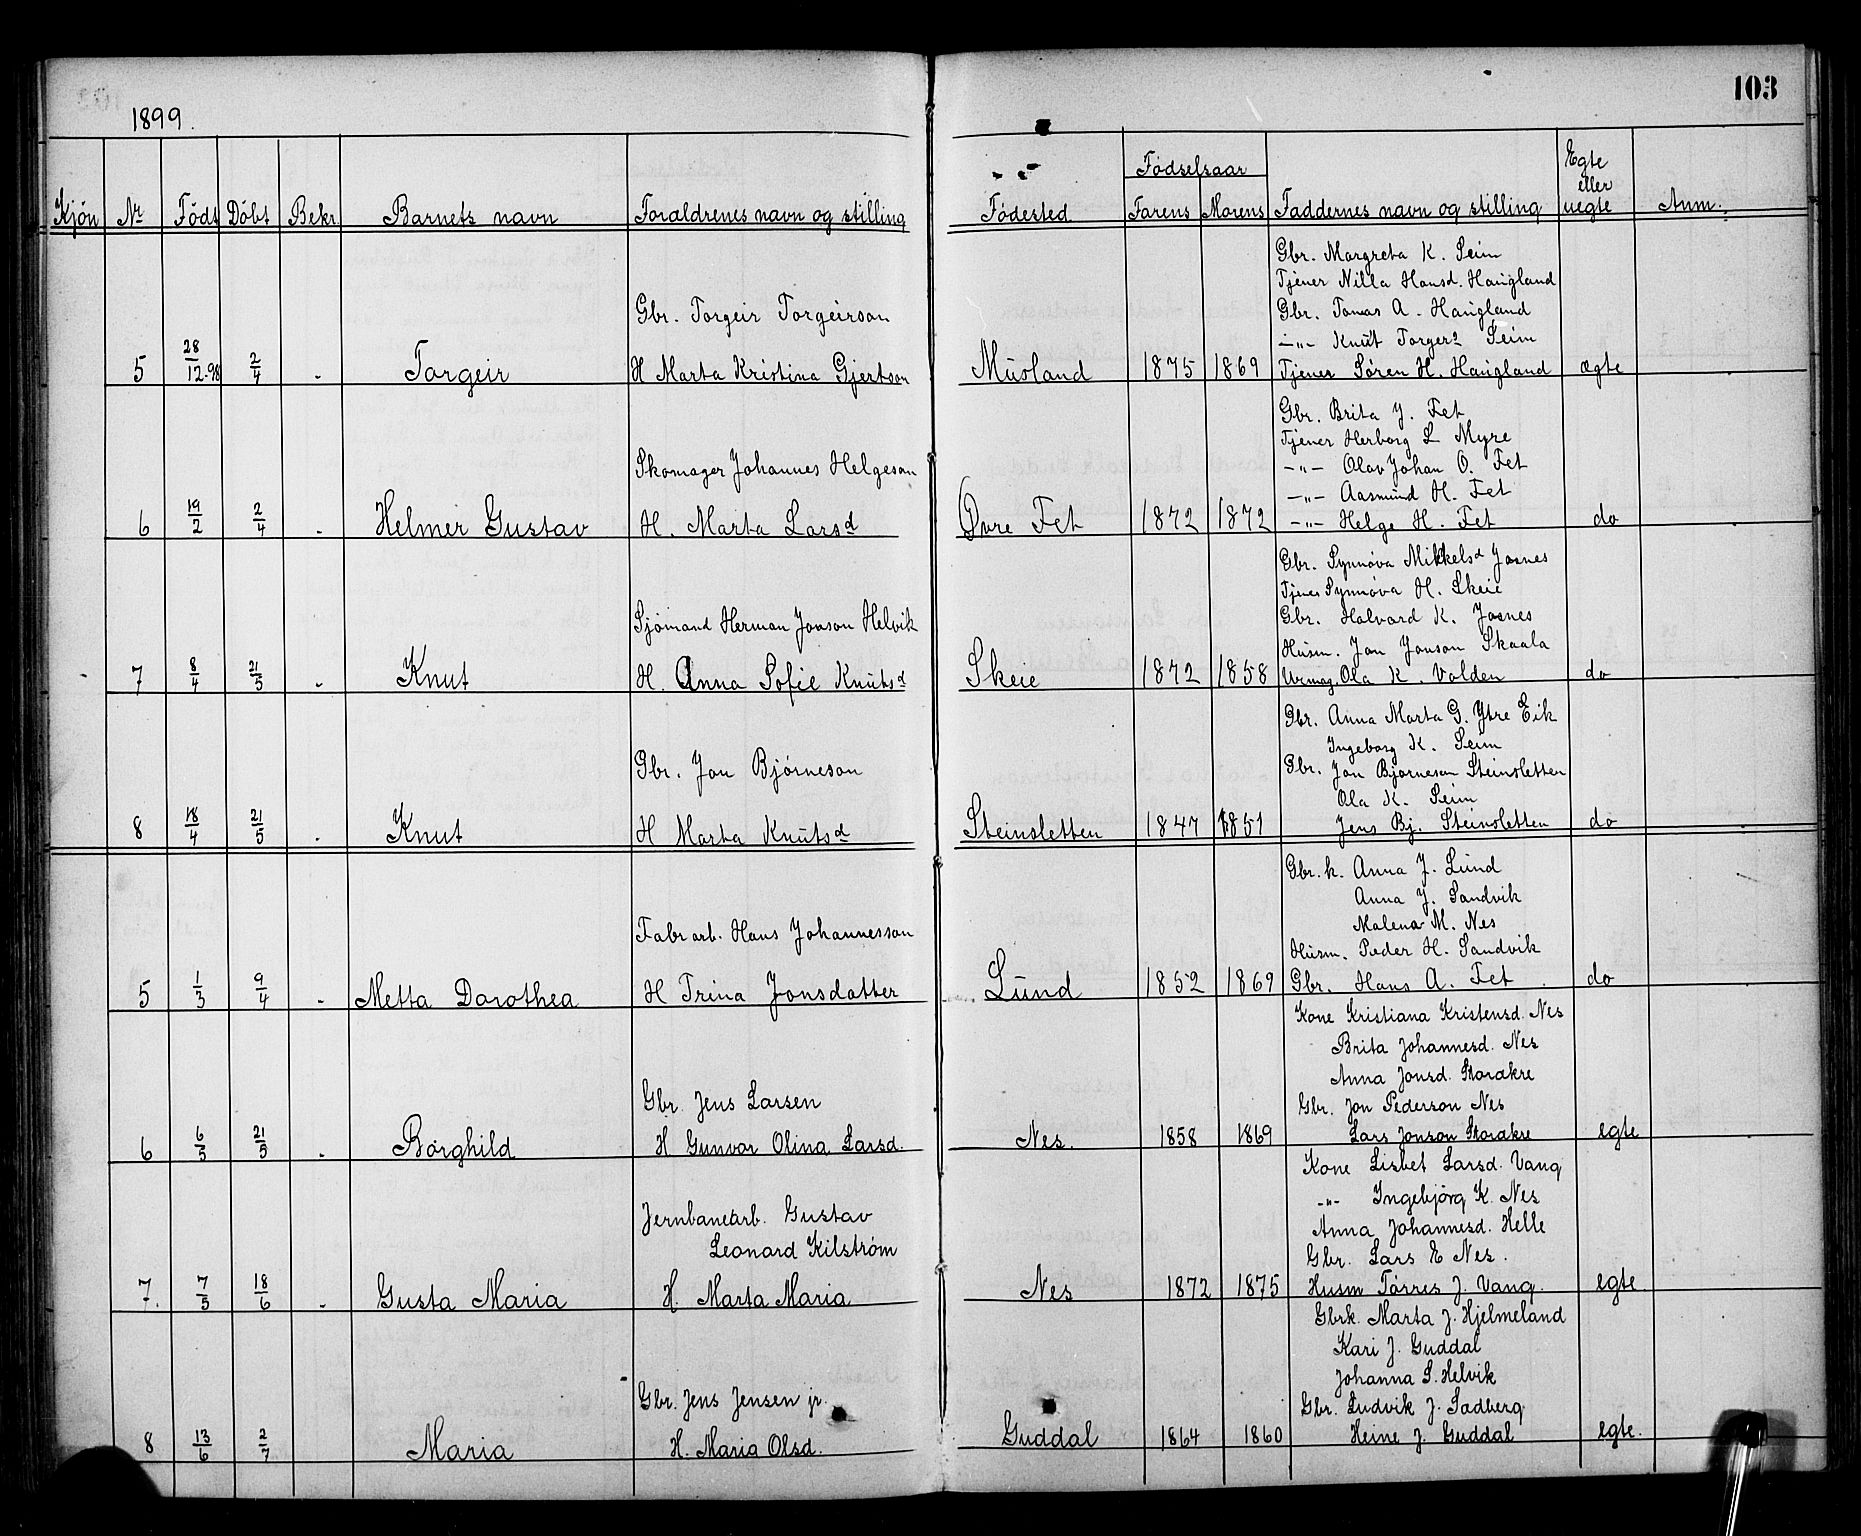 103
1899.
Kjön Nr Födt Döbt Bekr. Barnets navn Foraldrenes navn og stilling Födested Födselsaar Farens Morens Faddernes navn og stilling Egte eller uegte Anm.
Gbr. Margreta K. Seim
Tjener Nilla Hansd. Haugland
Gbr. Torgeir Torgeirson Gbr. Tomas A. Haugland
-"- Knut Torgers Seim
5 28/12.98 2/4 - Torgeir H Marta Kristina Gjertson Musland 1875 1869 Tjener Søren H. Haugland ægte
Gbr. Brita J. Fet
Tjener Herborg L Myre
Skomager Johannes Helgeson -"- Olav Johan O. Fet
-"- Aasmund H. Fet
6 19/2 2/4 - Helmer Gustav H. Marta Larsd Øvre Fet 1872 1872 -"- Helge H. Fet do
Gbr. Synnøva Mikkelsd Josnes
Tjener Synnøva H. Skeie
Sjømand Herman Jonson Helvik Gbr. Halvard K. Josnes
Husm. Jon Jonson Skaala
7 8/4 21/5 - Knut H. Anna Sofie Knutsd Skeie 1872 1858 Urmag. Ola K. Volden do
Gbr. Anna Marta G. Ytre Eik
Ingeborg K. Seim
Gbr. Jon Bjørneson Gbr. Jon Bjørneson Steinsletten
Ola K. Seim
8 18/4 21/5 - Knut H Marta Knutsd Steinsletten 1847 1851 Jens Bj. Steinsletten do
Gbr.k. Anna J. Lund
Anna J. Sandvik
Malena M. Nes
Fabr arb. Hans Johannesson Husm. Peder H. Sandvik
5 1/3 9/4 - Metta Dorothea H Trina Jonsdatter Lund 1852 1869 Gbr. Hans A. Fet do
Kone Kristiana Kristensd. Nes
Brita Johannesd. Nes
Anna Jonsd. Storakre
Gbr. Jens Larsen Gbr. Jon Pederson Nes
6 6/5 21/5 - Borghild H Gunvor Olina Larsd. Nes. 1858 1869 Lars Jonson Storakre egte
Kone Lisbet Larsd. Vang
-"- Ingebjörg K. Nes
Jernbanearb. Gustav Anna Johannesd. Helle
Leonard Kilstrøm Gbr. Lars E Nes.
7. 7/5 18/6 - Gusta Maria H Marta Maria Nes 1872 1875 Husm Tørres J. Vang. egte.
Gbrk. Marta J. Hjelmeland
Kari J. Guddal
Johanna S. Helvik
Gbr. Jens Jensen jr. Gbr. Ludvik J. Sadberg
8 13/6 2/7 Maria H. Maria Olsd. Guddal 1864 1860 Heine J. Guddal egte.